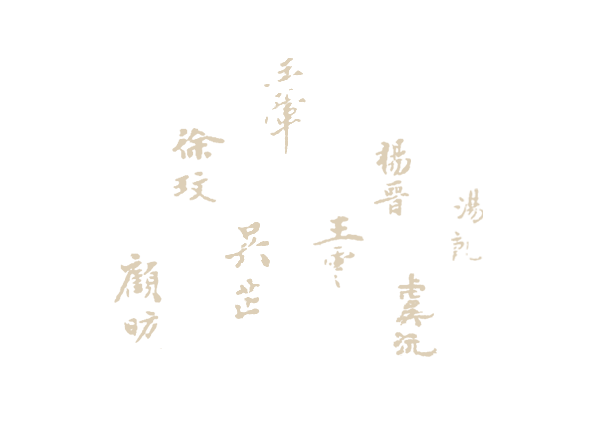 湯
楊晉
虞沅
王雲
王翬
吳芷
徐玫
顧昉